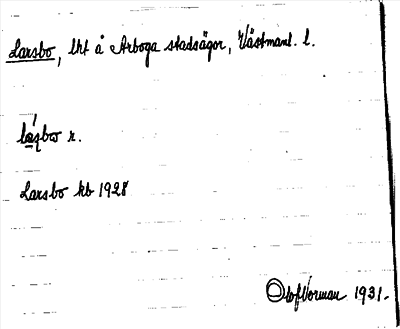 Larsbo, lht å Arboga stadsägor, Västmanl. l.
Larsbo kb 1928
Olof Vorman 1931.